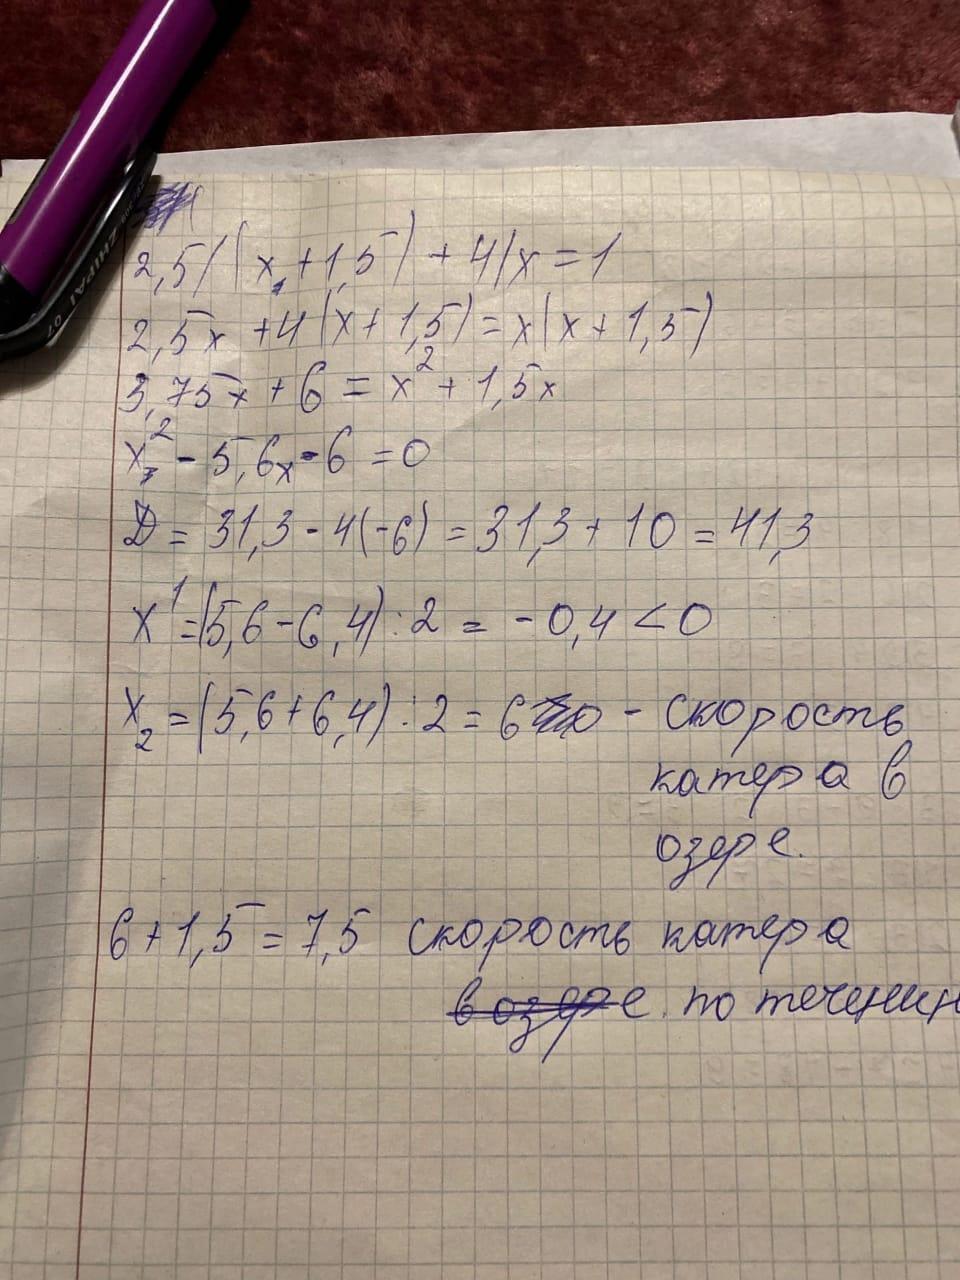 2,5/(x+1,5)+4/x=1
2,5x+4(x+1,5)=x(x+1,5)
3,75x+6=x²+1,5x
x²-5,6x-6=0
D=31,3-4(-6)=31,3+10=41,3
x¹=(5,6-6,4):2=-0,4<0
x₂=(5,6+6,4):2=6 - скорость
катера в
озере.
6+1,5=7,5 скорость катера
в озере. по течении
ZHIPAI 0.7